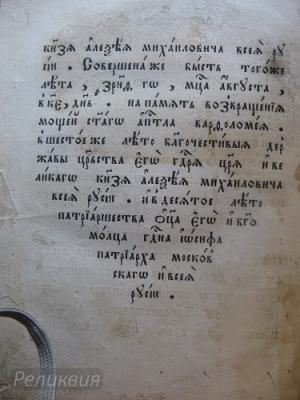 кнѧ́зѧ а҆леѯѣ́ѧ михаиловича всеѧ̀ рꙋ
сїи . Совершена́же бы́сть тогѡ́же
лѣ́та , зр҃нф , гѡ , мц҃а а҆́вгꙋста ,
в к҃е , дн҃ь . на па́мѧть возвраще́нїѧ
моще́й ст҃а́гѡ а҆пⷭ҇тла вар,ѳоломе́ѧ .
в шесто́е же лѣ́то бл҃гочести́выѧ дер
жа́вы цр҃ьства є҆гѡ̀ гдⷭ҇рѧ цр҃ѧ̀ и҆ ве
ли́кагѡ кнѧ́зѧ а҆леѯѣ́ѧ миха́иловича
всеѧ̀ рꙋсїи . и҆ в десѧ́тое лѣ́то
патрїа́ршества ѻ҆ц҃а̀ є҆гѡ̀ и҆ бг҃о
мо́лца гдⷭ҇на і҆ѡ́сифа
патрїа́рха моско́в
скагѡ и҆ всеѧ̀
рꙋсїи .
Реликвия